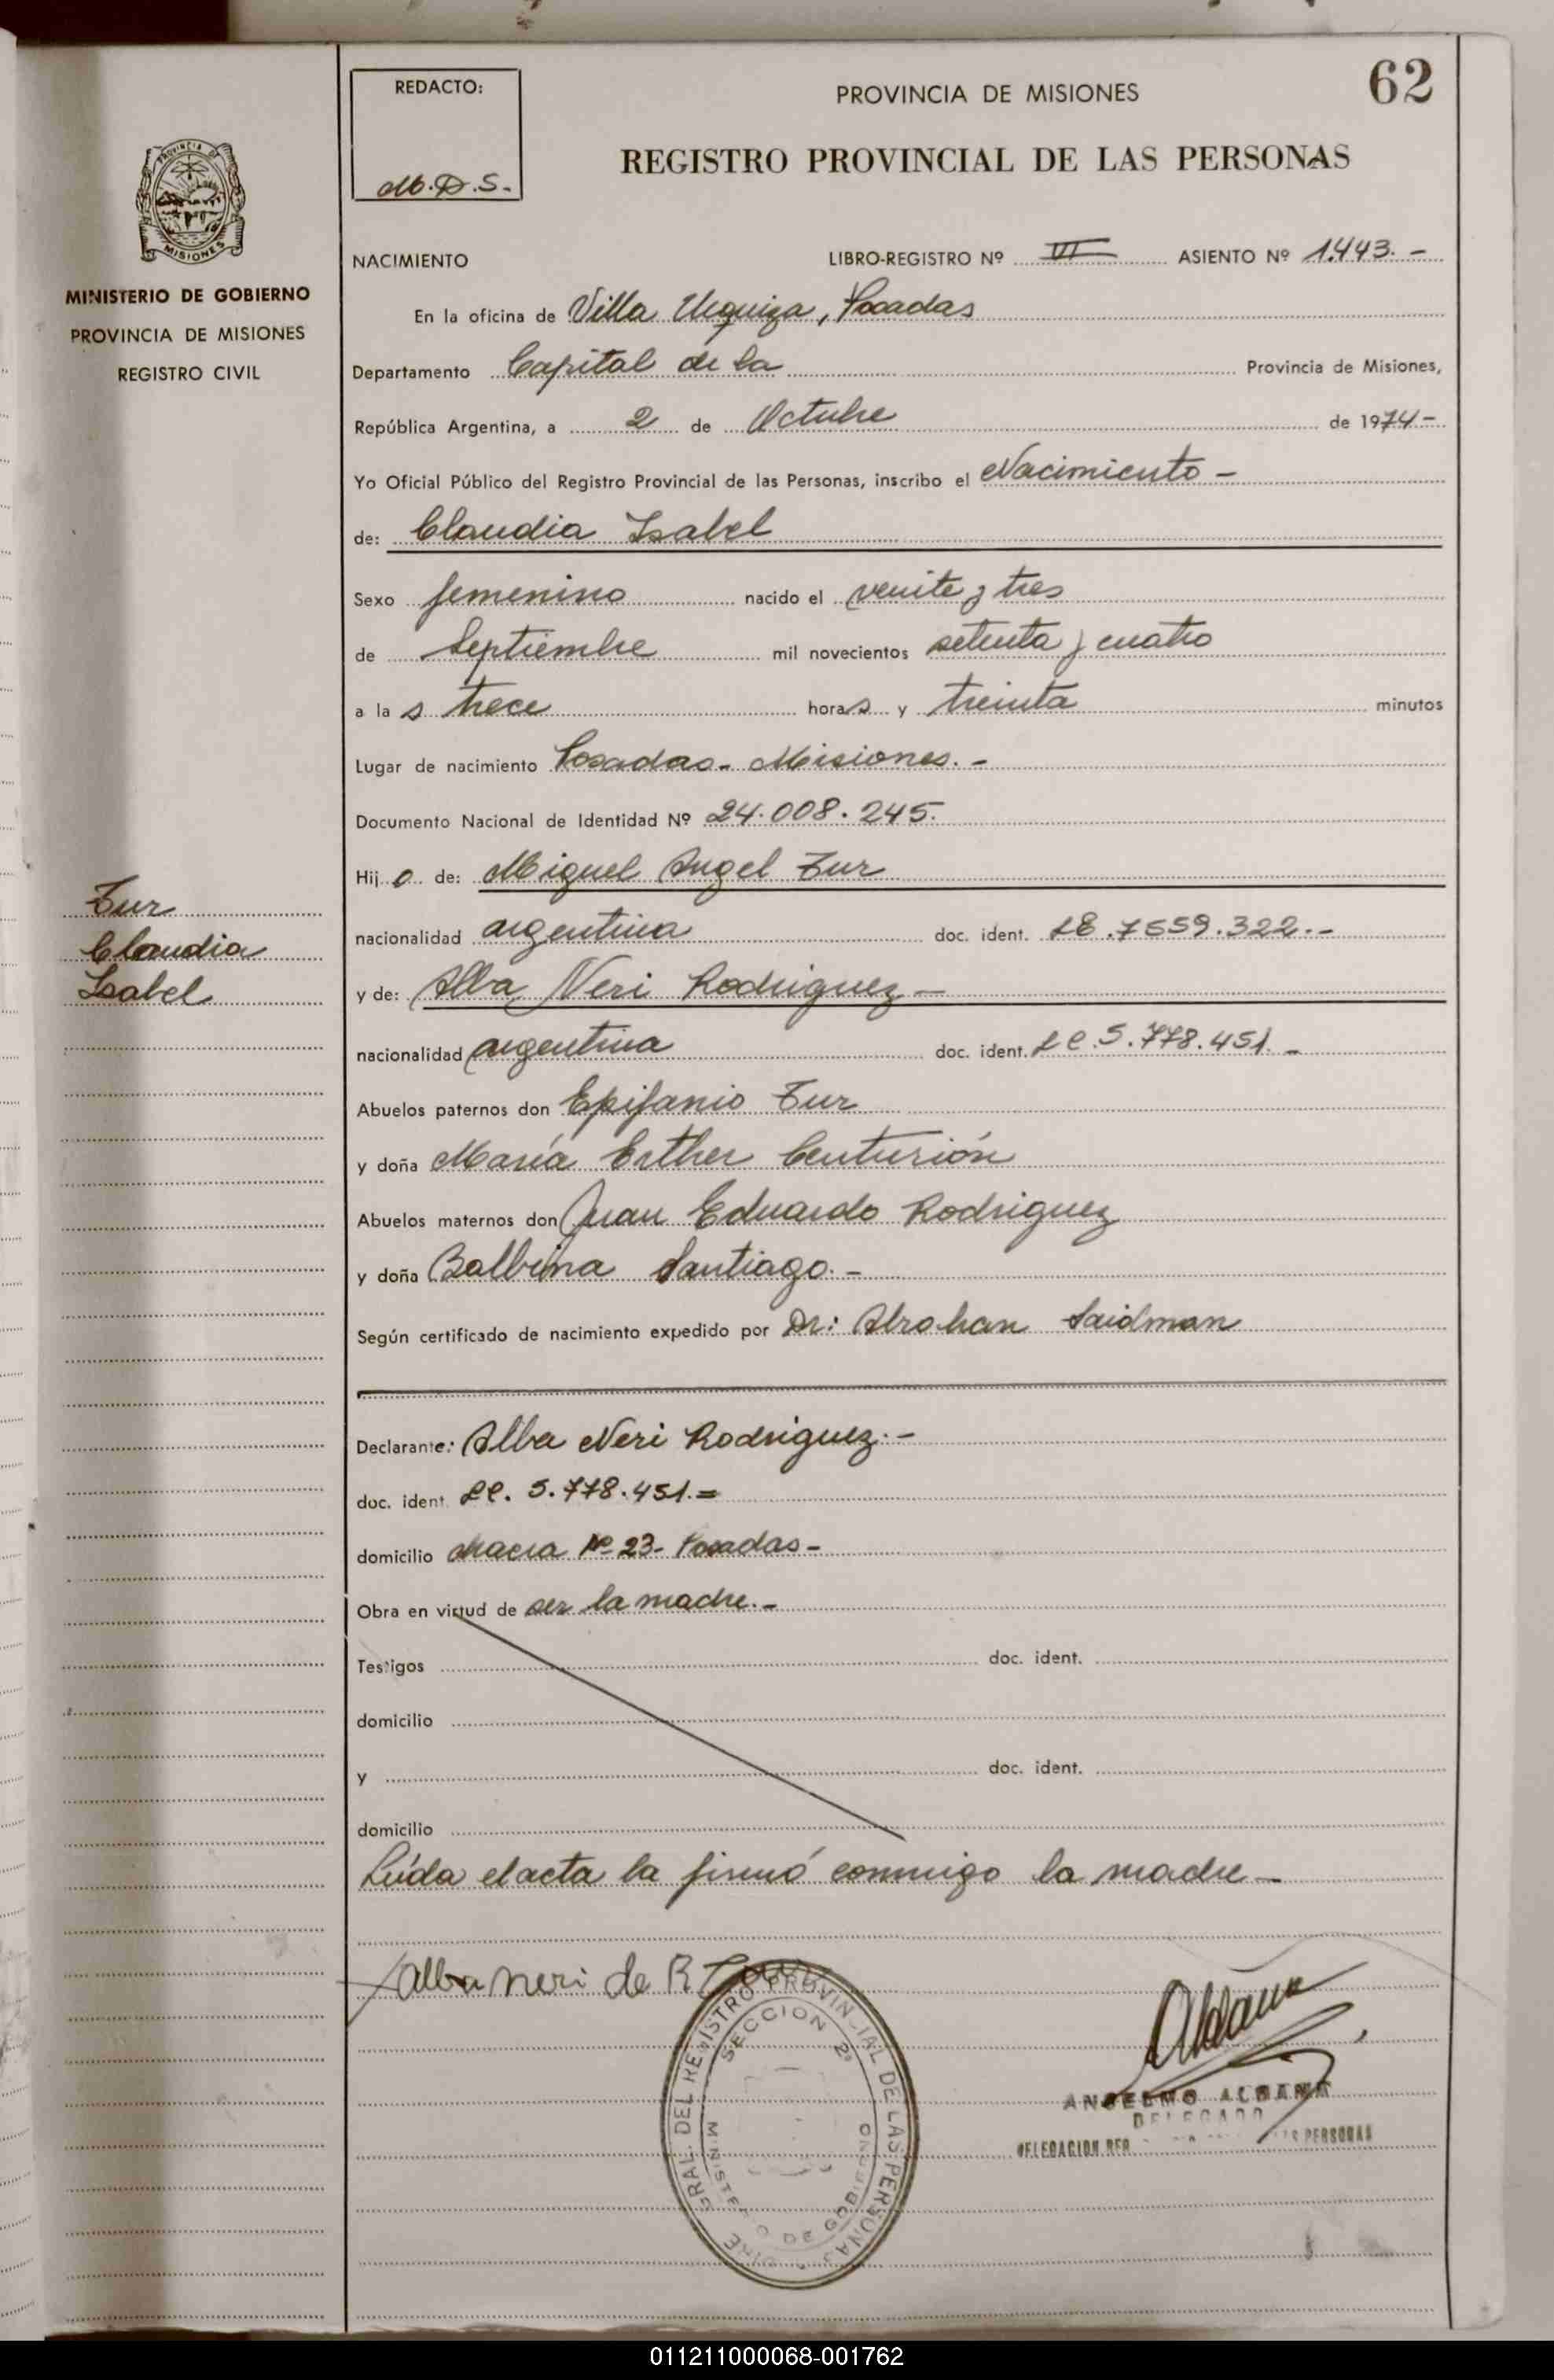 62
REDACTO:
M.D.S.-
PROVINCIA DE MISIONES
REGISTRO PROVINCIAL DE LAS PERSONAS
PROVINCIA DE
MISIONES
MINISTERIO DE GOBIERNO
PROVINCIA DE MISIONES
REGISTRO CIVIL
NACIMIENTO LIBRO-REGISTRO Nº VI ASIENTO Nº 1.443.-
En la oficina de Villa Urquiza, Posadas
Departamento Capital de la Provincia de Misiones,
República Argentina, a 2 de Octubre de 1974-
Yo Oficial Público del Registro Provincial de las Personas, inscribo el Nacimiento-
de: Claudia Isabel
Sexo femenino nacido el veinte y tres
de Septiembre mil novecientos setenta y cuatro
a la s trece horas y treinta minutos
Lugar de nacimiento Posadas- Misiones.-
Documento Nacional de Identidad Nº 24.008.245.
Hij a de: Miguel Angel Zur
nacionalidad argentina doc. ident. LE.7559.322.-
y de: Alba Neri Rodriguez-
nacionalidad argentina doc. ident. LC.5.778.451.-
Abuelos paternos don Epifanio Zur
y doña María Esther Centurión
Abuelos maternos don Juan Eduardo Rodriguez
y doña Balbina Santiago.-
Según certificado de nacimiento expedido por Dr: Abrahan Saidman
Zur
Claudia
Isabel
Declarante: Alba Neri Rodriguez.-
doc. ident. LC. 5.778.451.=
domicilio chacra Nº 23- Posadas-
Obra en virtud de ser la madre.-
Testigos doc. ident.
domicilio
y doc. ident.
domicilio
Leída el acta la firmó conmigo la madre-
Alba neri de R Zur
Aldana
GRAL. DEL REGISTRO PROVINCIAL DE LAS PERSONAS
SECCION 2ª
MINISTERIO DE GOBIERNO
ANSELMO ALDANA
DELEGADO
DELEGACION REG. PERSONAS
011211000068-001762